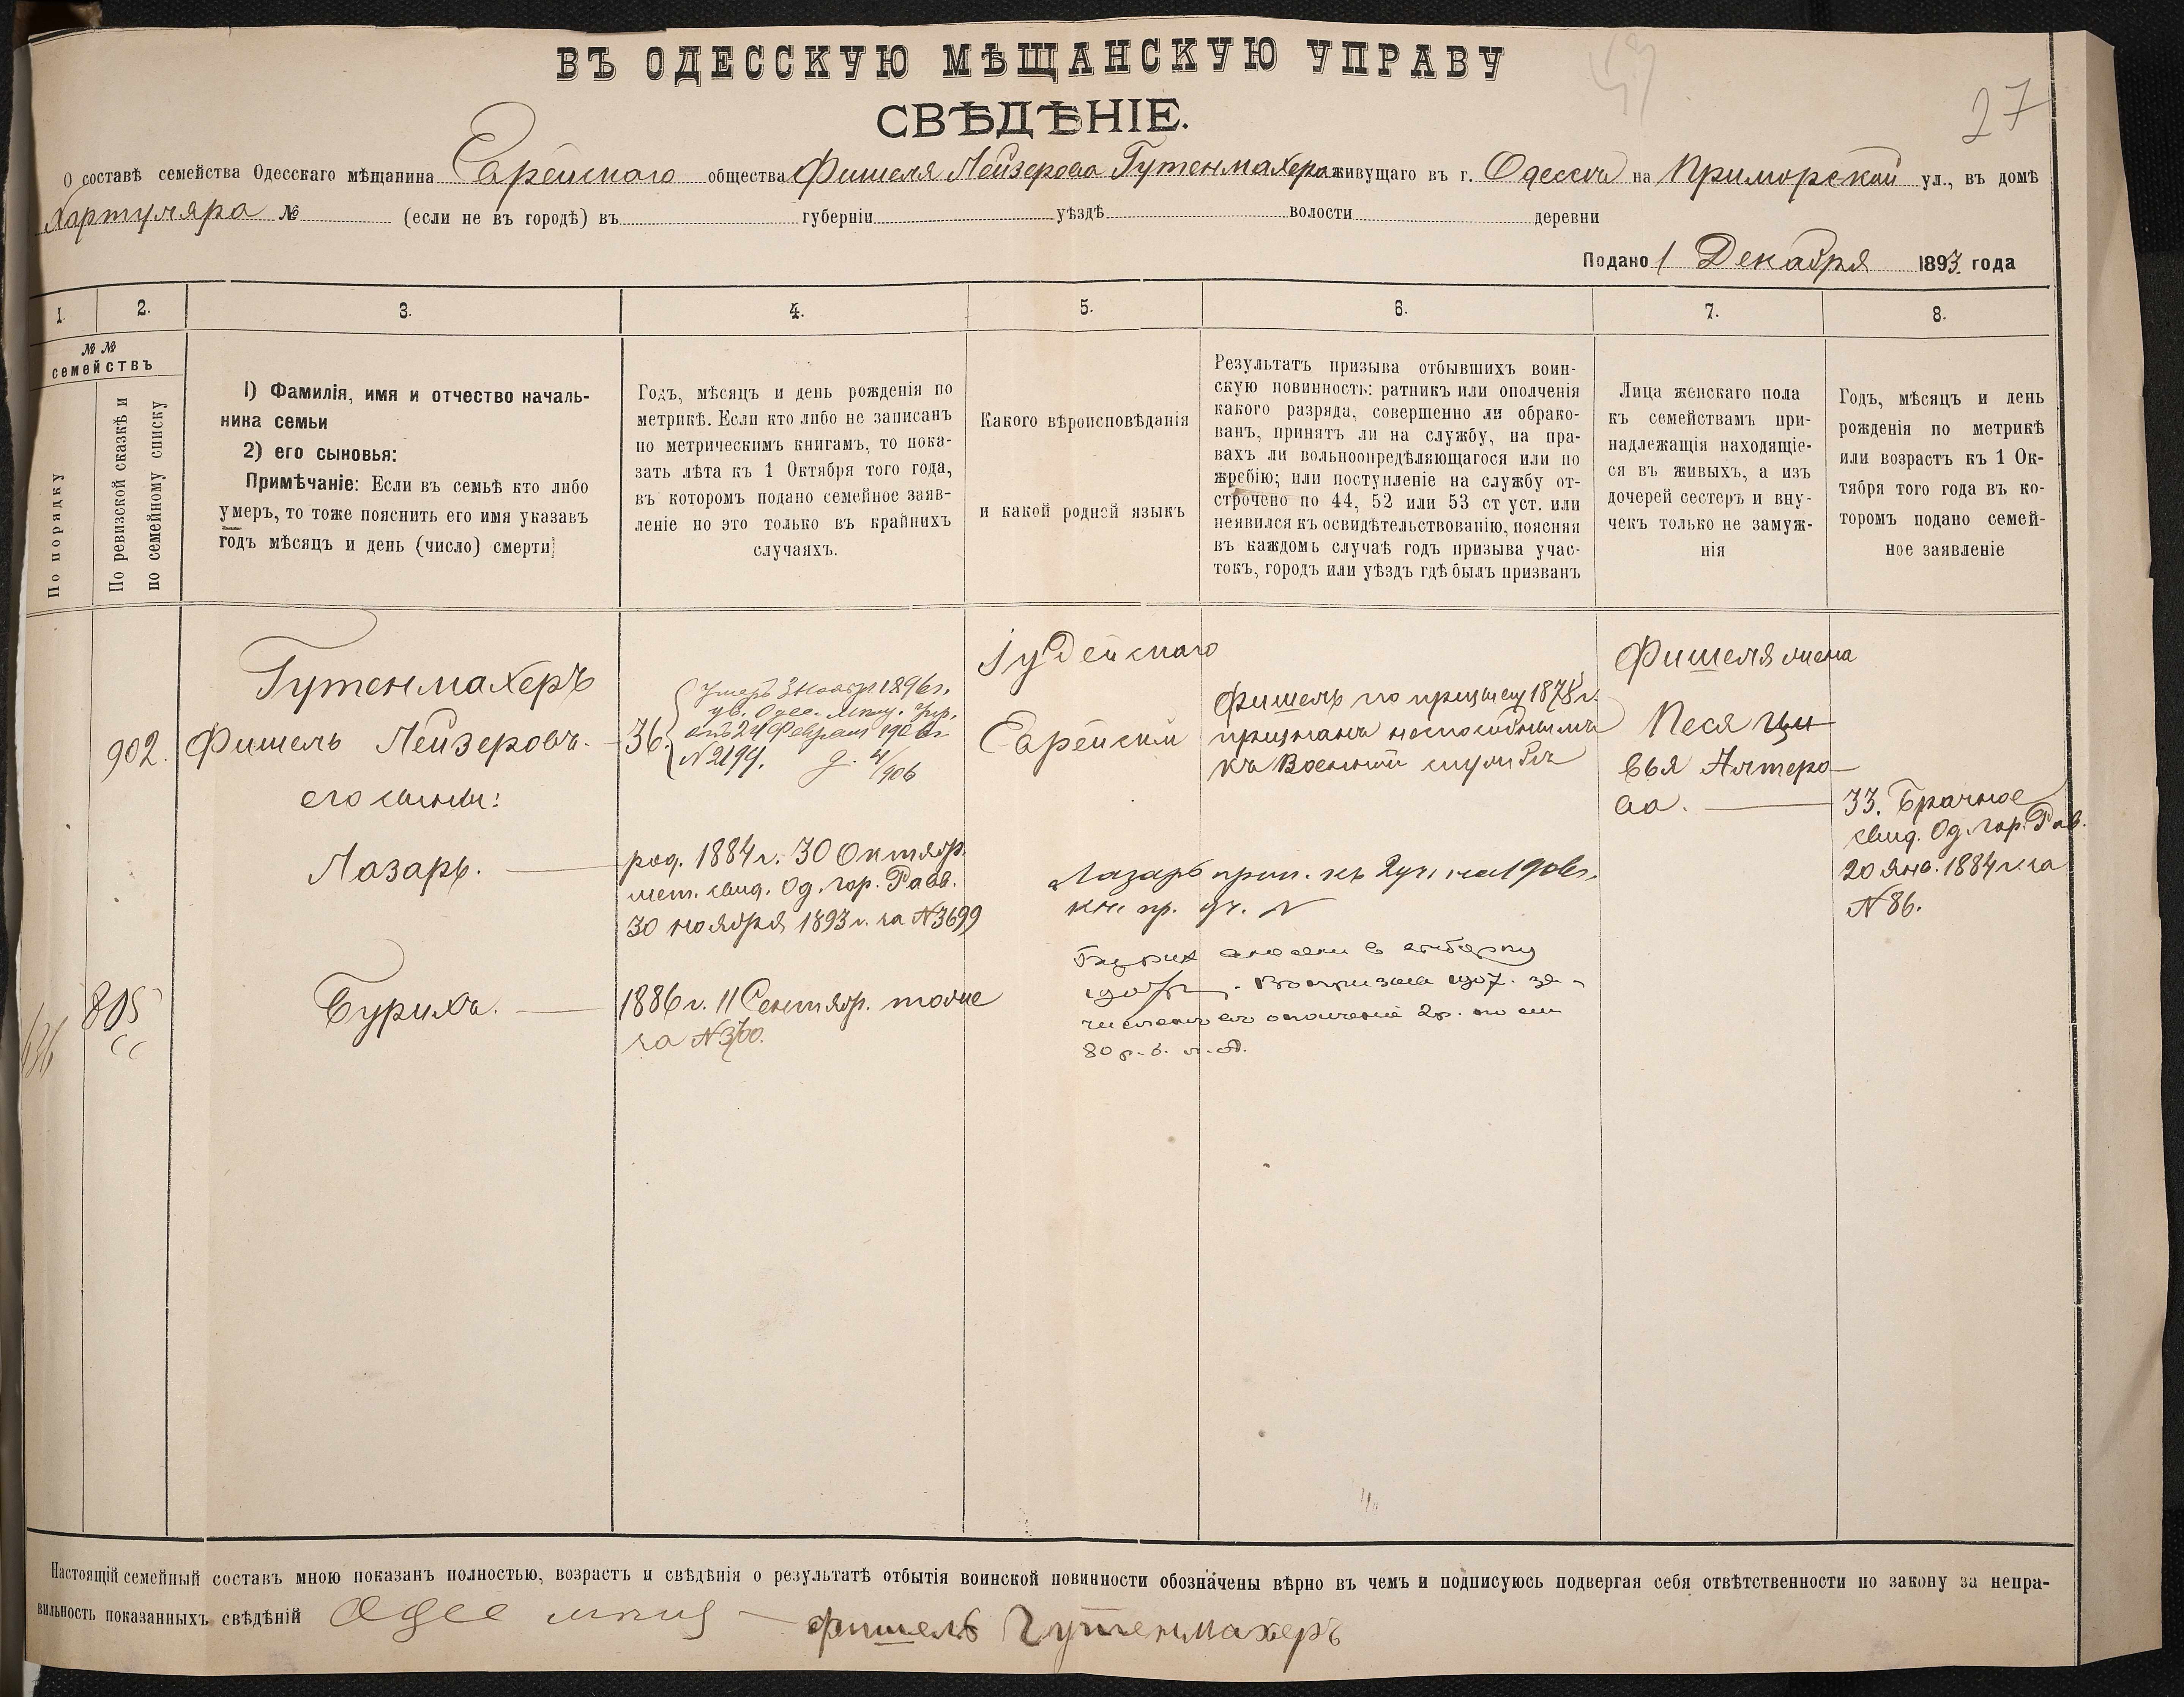 ВЪ ОДЕССКУЮ МѢЩАНСКУЮ УПРАВУ
27
СВѢДѢНІЕ.
О составѣ семейства Одесскаго мѣщанина Еврейскаго общества Фишеля Лейзерова Гутенмахера живущаго въ г. Одессѣ на Приморской ул., въ домѣ
Хартуляра № (если не въ городѣ) въ губерніи уѣздѣ волости деревни
Подано 1 Декабря 1893 года
1. 2. 3. 4. 5. 6. 7. 8.
№ №
семействъ
По порядку
По ревизской сказкѣ и
по семейному списку
1) Фамилія, имя и отчество началь-
ника семьи
2) его сыновья:
Примѣчаніе: Если въ семьѣ кто либо
умеръ, то тоже пояснить его имя указавъ
годъ мѣсяцъ и день (число) смерти
Годъ, мѣсяцъ и день рожденія по
метрикѣ. Если кто либо не записанъ
по метрическимъ книгамъ, то пока-
зать лѣта къ 1 Октября того года,
въ которомъ подано семейное заяв-
леніе но это только въ крайнихъ
случаяхъ.
Какого вѣроисповѣданія
и какой родной языкъ
Результатъ призыва отбывшихъ воин-
скую повинность: ратникъ или ополченія
какого разряда, совершенно ли обрако-
ванъ, принятъ ли на службу, на пра-
вахъ ли вольноопредѣляющагося или по
жребію; или поступленіе на службу от-
строчено по 44, 52 или 53 ст уст. или
неявился къ освидѣтельствованію, поясняя
въ каждомъ случаѣ годъ призыва учас-
токъ, городъ или уѣздъ гдѣ былъ призванъ
Лица женскаго пола
къ семействамъ при-
надлежащія находящіе-
ся въ живыхъ, а изъ
дочерей сестеръ и вну-
чекъ только не замуж-
нія
Годъ, мѣсяцъ и день
рожденія по метрикѣ
или возрастъ къ 1 Ок-
тября того года въ ко-
торомъ подано семей-
ное заявленіе
902.
Гутенмахеръ
Фишель Лейзеровъ.
его сыны:
Лазарь.
805
Бурихъ.
36.
Умеръ 3 Ноябр. 1896 г.
ув. Одес. мѣщ. Упр.
отъ 24 Февраля 1906 г.
N 2199. 4/906
род. 1884 г. 30 Октябр.
мет. свид. Од. Гор. Равв.
30 ноября 1893 г. за N3699
1886 г. 11 Сентябр. тоже
за N3700.
Іудейскаго
Еврейскій
Фишель по призыву 1878 г.
признанъ неспособнымъ
къ Военной службѣ
Лазарь прип. къ 2 уч. на 1906 г.
Бурих
1907. за-
численъ въ ополченіе 2 р.
Фишеля жена
Песя Ци-
вья Алтеро-
ва.
33. Брачное
свид. Од. Гор. Рав.
20 Янв. 1884 г. за
N 86.
Настоящій семейный составъ мною показанъ полностью, возрастъ и свѣдѣнія о результатѣ отбытія воинской повинности обозначены вѣрно въ чемъ и подписуюсь подвергая себя отвѣтственности по закону за непра-
вильность показанныхъ свѣдѣній Одес мѣщ — фишель Гутенмахеръ